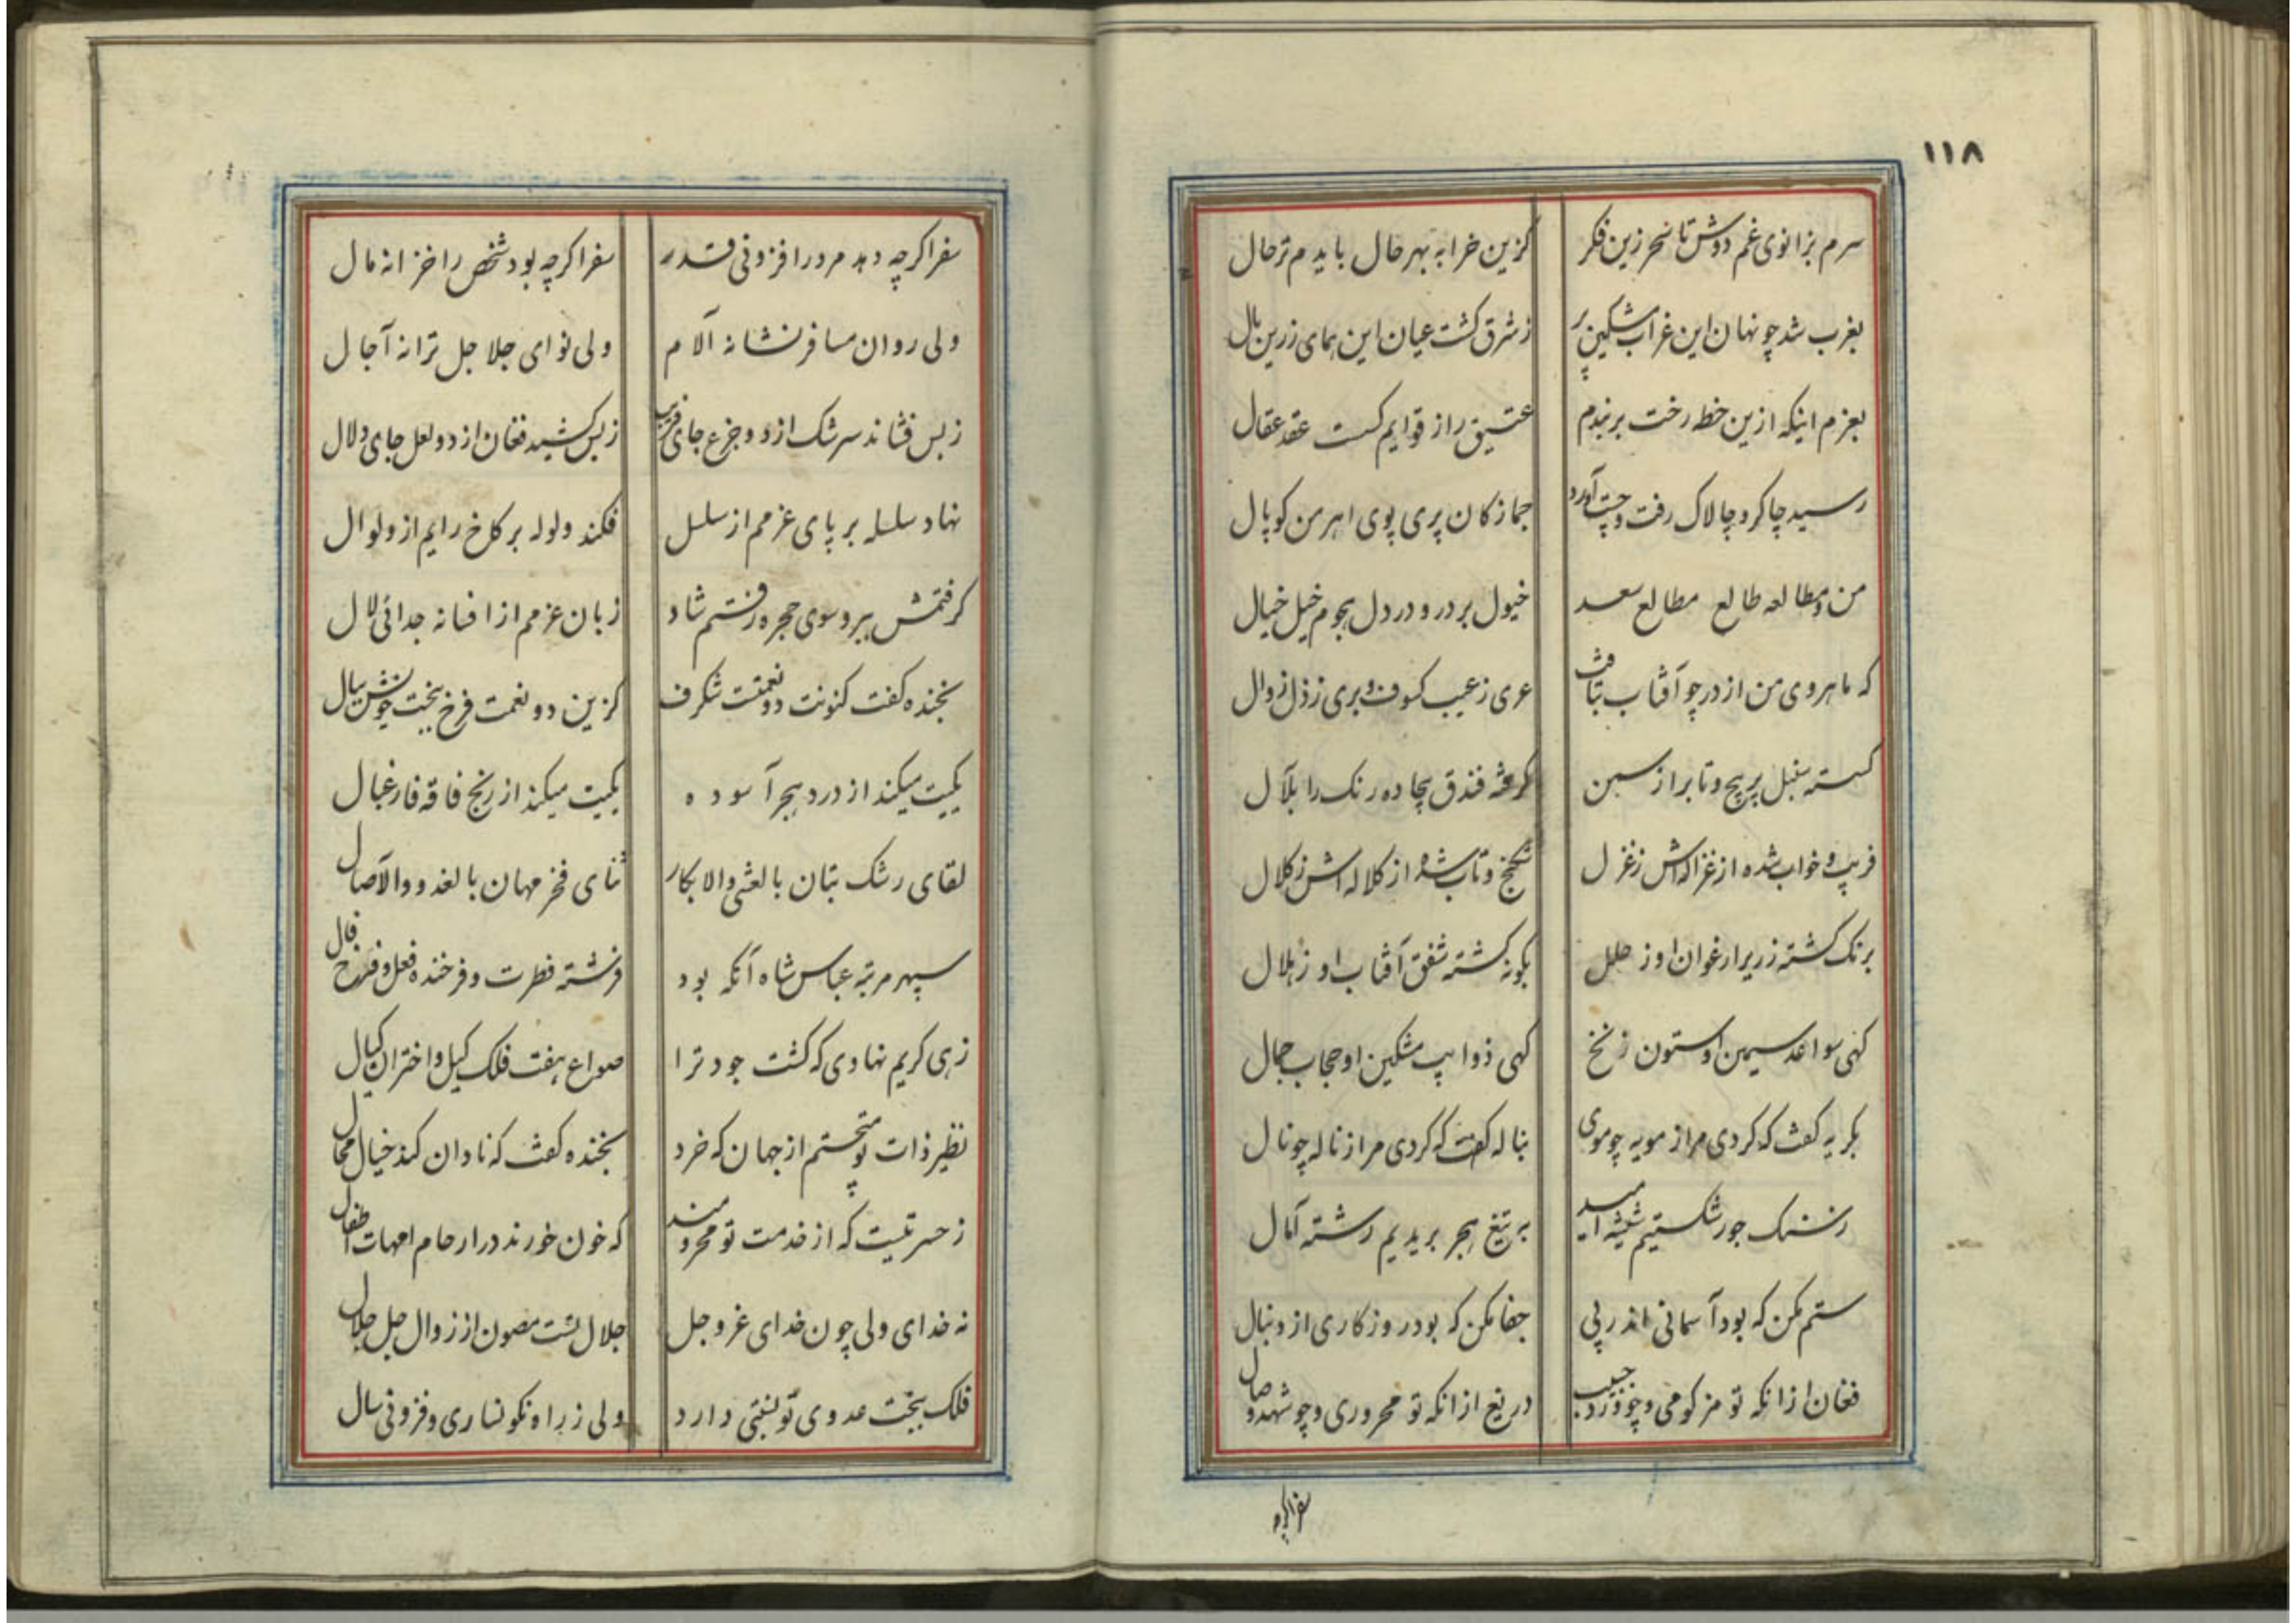 ۱۱۸
سرم بزانوی غم دوش تا سحر زین فکر کزین خرابه بهر حال باید م ترحال
بغرب شد چو نهان این غراب مشکین پر ز شرق کشت عیان این همای زرین بال
بعزم اینکه ازین خطه رخت بربندم عتیق راز قوایم کست عقد عقال
رسید چاکر و چالاک رفت و چست آورد جمازکان پری پوی اهرمن کوپال
من و مطالعه طالع مطالع سعد خیول بر در و در دل هجوم خیل خیال
که ماهروی من از در چو آفتاب بتافت عری ز عیب کسوف و بری ز ذل زوال
کسته سنبل پر پیچ و تاب را ز سمن کرفته فندق بیجاده رنک را بلآل
فریب و خواب شده از غزاله اش ز غزل شکنج و تاب شده از کلاله اش ز کلال
برنک کشته زریر ارغوان او ز ملل بکونه کشته شفق آفتاب او ز هلال
کهی سواعد سیمین او ستون زنخ کهی ذوایب مشکین او حجاب جمال
بکریه کفت که کردی مرا ز مویه چو موی بناله کفت که کردی مرا ز ناله چو نال
ز سنک جور شکستیم شیشه امید به تیغ هجر بریدیم رشته آمال
ستم مکن که بود آسمانی اندر پی جفا مکن که بود روزکاری از دنبال
فغان از انکه تو مزکومی و چو ورد حبیب دریغ از انکه تو محروری و چو شهد وصال
سفر اکرچه
سفر اکرچه دهد مرد را فزونی قدر سفر اکرچه بود شخص را خزانه مال
ولی روان مسافر نشانه آلام ولی نوای جلاجل ترانه آجال
ز بس فشاند سرشک از دو جزع جای فریب ز بس کشید فغان از دو لعل جای دلال
نهاد سلسله بر پای عزمم از سلسل فکند ولوله بر کاخ رایم از ولوال
کرفتمش ببر و سوی حجره رفتم شاد زبان عزمم از افسانه جدائی لال
بخنده کفت کنونت دو نعمتست شکرف کزین دو نعمت فرخ بخت خویش ببال
یکیت میکند از درد هجر آسوده یکیت میکند از رنج فاقه فارغبال
لقای رشک بتان بالعشی والابکار ثنای فخر مهان بالغدو والآصال
سپهر مرتبه عباس شاه آنکه بود فرشته فطرت و فرخنده فعل و فرخ فال
زهی کریم نهادی که کشت جود ترا صواع هفت فلک کیل و اختران کیال
نظیر ذات تو جستم از جهان که خرد بخنده کفت که نادان کند خیال محال
ز حسرتیست که از خدمت تو محرومند که خون خورند در ارحام امهات اطفال
نه خدای ولی چون خدای عز و جل جلال تست مصون از زوال جل جلال
فلک ببخت عدوی تو نسبتی دارد ولی ز راه نکونساری و فزونی سال